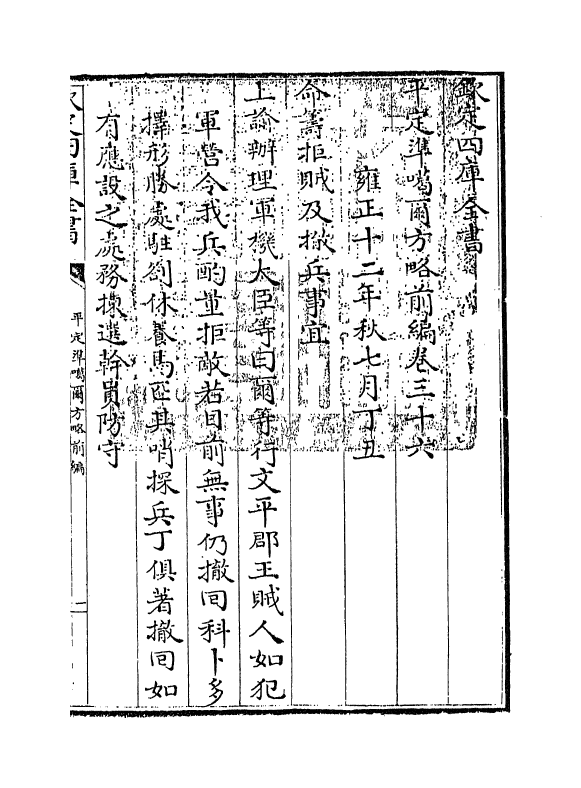 欽定四庫全書
平定準噶爾方略前編卷三十六
雍正十二年秋七月丁丑
命籌拒賊及撤兵事宜
上諭辦理軍機大臣等曰爾等行文平郡王賊人如犯
軍營令我兵酌量拒敵若目前無事仍撤回科卜多
擇形勝處駐劄休養馬匹其哨探兵丁俱著撤回如
有應設之處務揀選幹員防守
欽定四庫全書
平定準噶爾方略前編
一